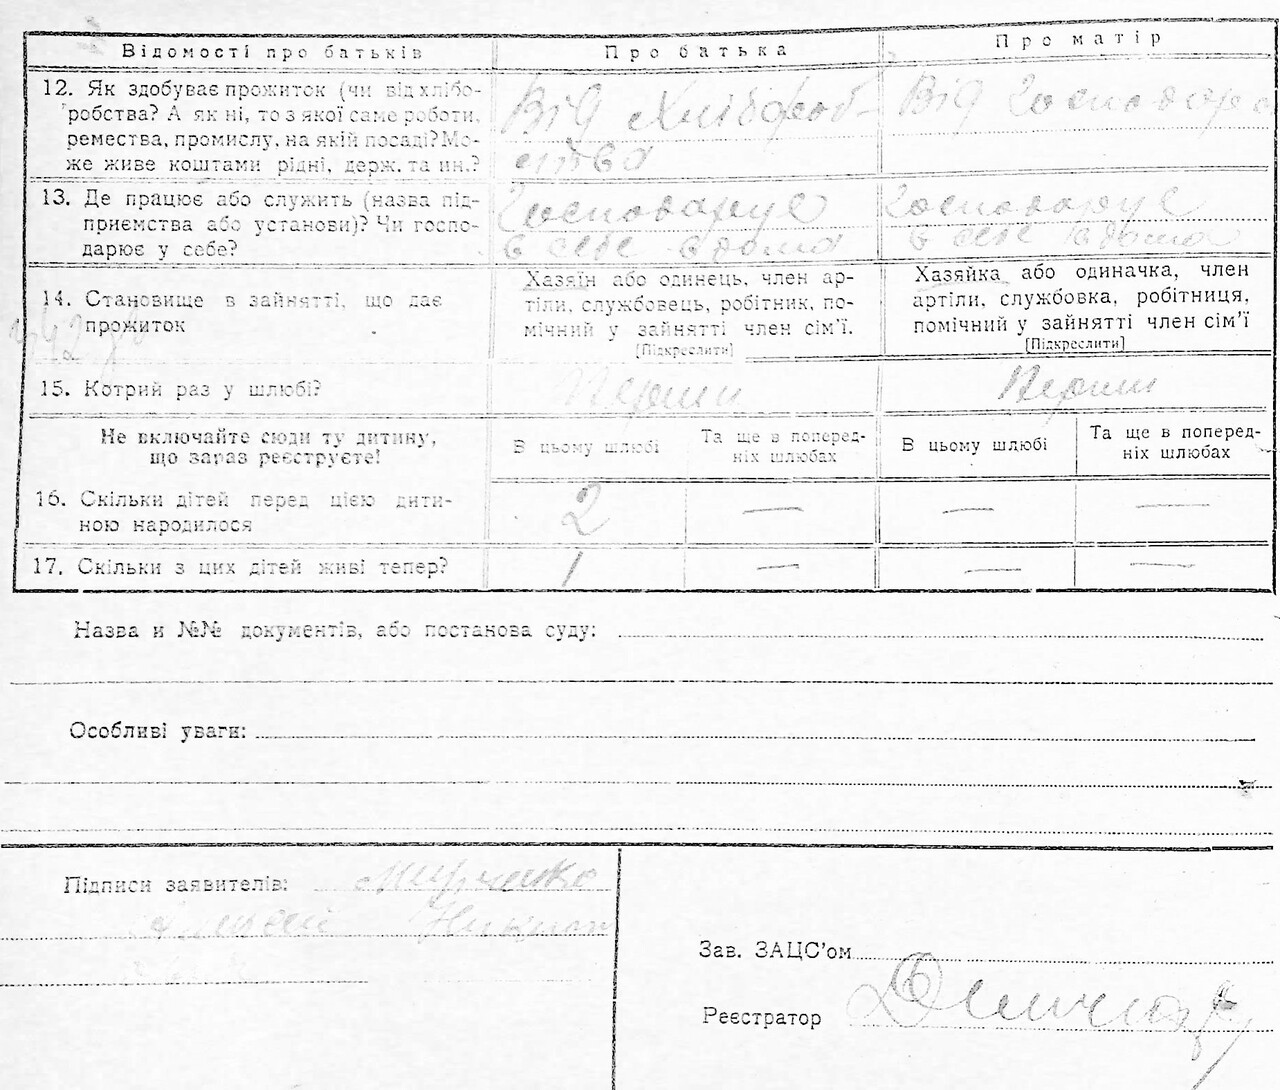 Відомості про батьків
Про батька
Про матір
12. Як здобуває прожиток (чи від хлібо-
робства? А як ні, то з якої саме роботи,
ремества, промислу, на якій посаді? Мо-
же живе коштами рідні, держ. та ин.?
Від Хлібороб-
ства
Від Господарс
13. Де працює або служить (назва під-
приємства або установи)? Чи госпо-
дарює у себе?
Господарує
в себе вдома
Господарує
в себе вдома
14. Становище в зайнятті, що дає
прожиток
Хазяїн або одинець, член ар-
тіли, службовець, робітник, по-
мічний у зайнятті член сім'ї.
[Підкреслити]
Хазяйка або одиначка, член
артіли, службовка, робітниця,
помічний у зайнятті член сім'ї
[Підкреслити]
15. Котрий раз у шлюбі?
Перший
Перший
Не включайте сюди ту дитину,
що зараз реєструєте!
В цьому шлюбі
Та ще в поперед-
ніх шлюбах
В цьому шлюбі
Та ще в поперед-
ніх шлюбах
16. Скільки дітей перед цією дити-
ною народилося
2 — — —
17. Скільки з цих дітей живі тепер?
1 — — —
Назва и №№ документів, або постанова суду:
Особливі уваги:
Підписи заявителів:
Зав. ЗАЦС'ом
Реєстратор